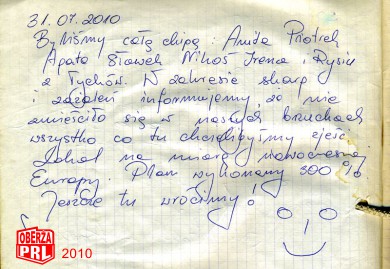 31.07.2010
Byliśmy całą chipą : Anida Piotrek,
Agata Sławek Nikoś Irena i Rysiu
z Tychów. W zakresie skarg
i zażaleń informujemy, że nie
zmieściło się w naszych brzuchach
wszystko co tu chcielibyśmy zjeść.
Lokal na miarę nowoczesnej
Europy. Plan wykonany 300 %
Jeszcze tu wrócimy!
OBERŻA
PRL
2010